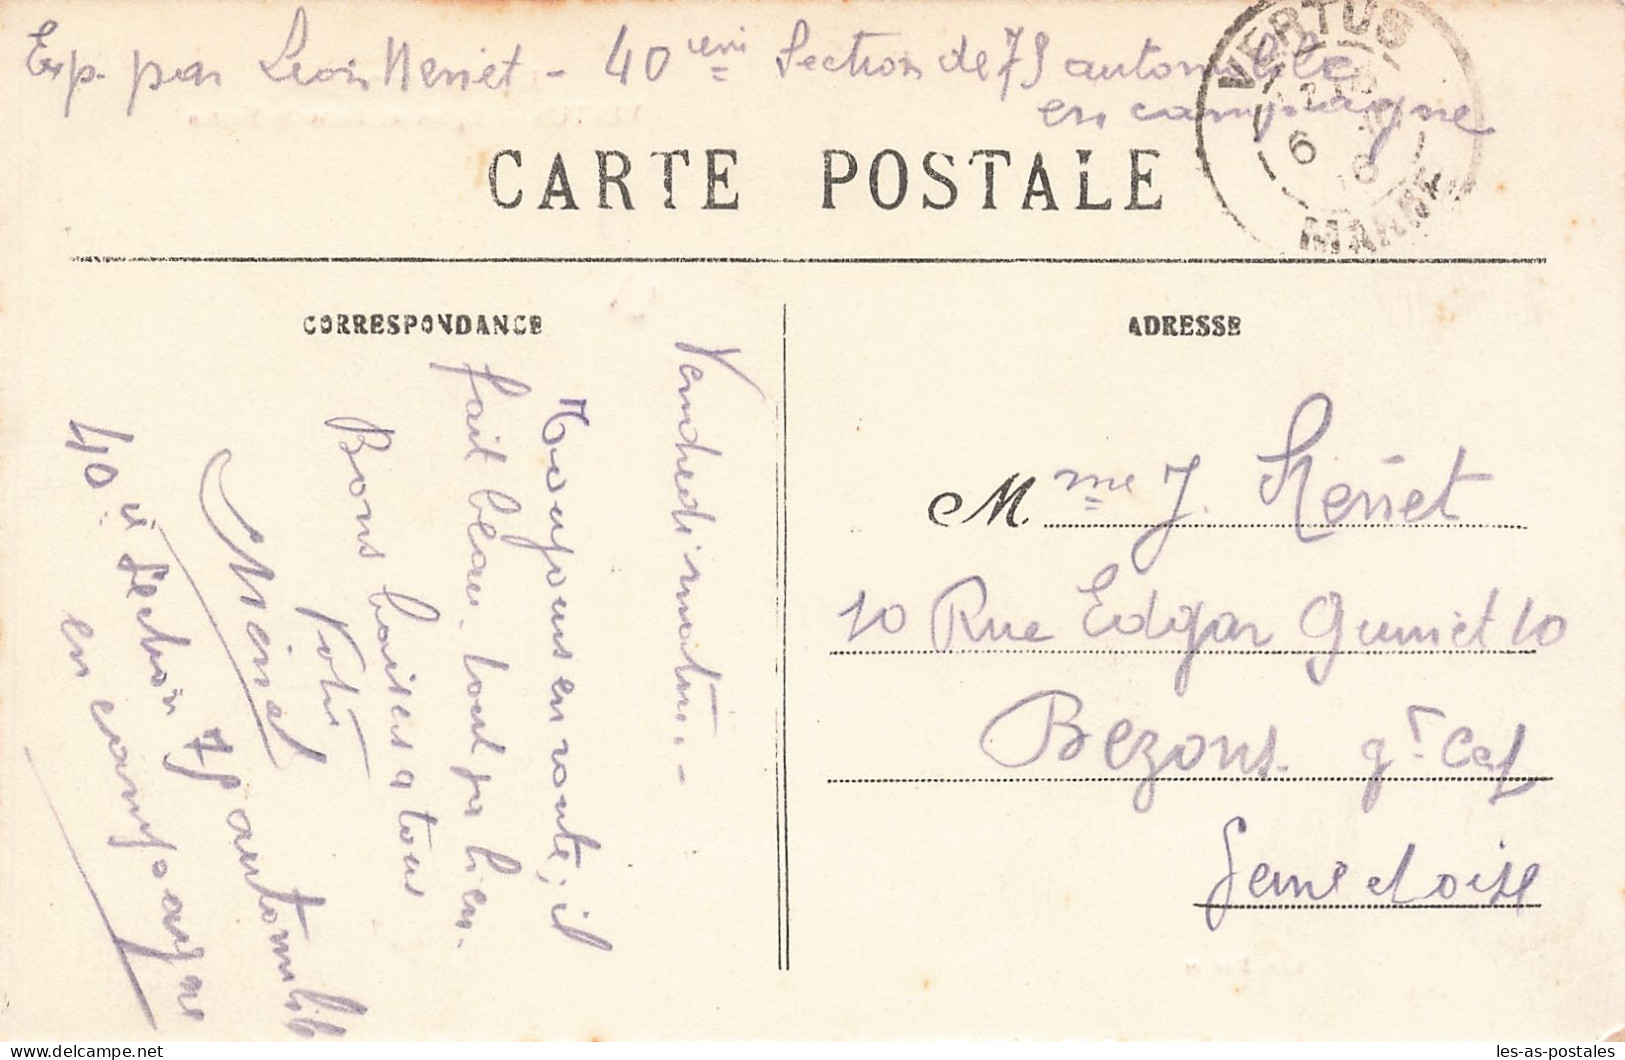 Exp. par Léon Merriet - 40ième Section de 75 automobile
en campagne
VERTUS
6
MARNE
CARTE POSTALE
CORRESPONDANCE
Vendredi matin. -
Toujours en route; il
fait beau. tout va bien.
Bons baisers a tous
Votre
40e Section 75 automobile
en campagne
ADRESSE
Mme J.
10 Rue Edgar Quinet 10
Bezons. 
Seine et Oise
les-as-postales